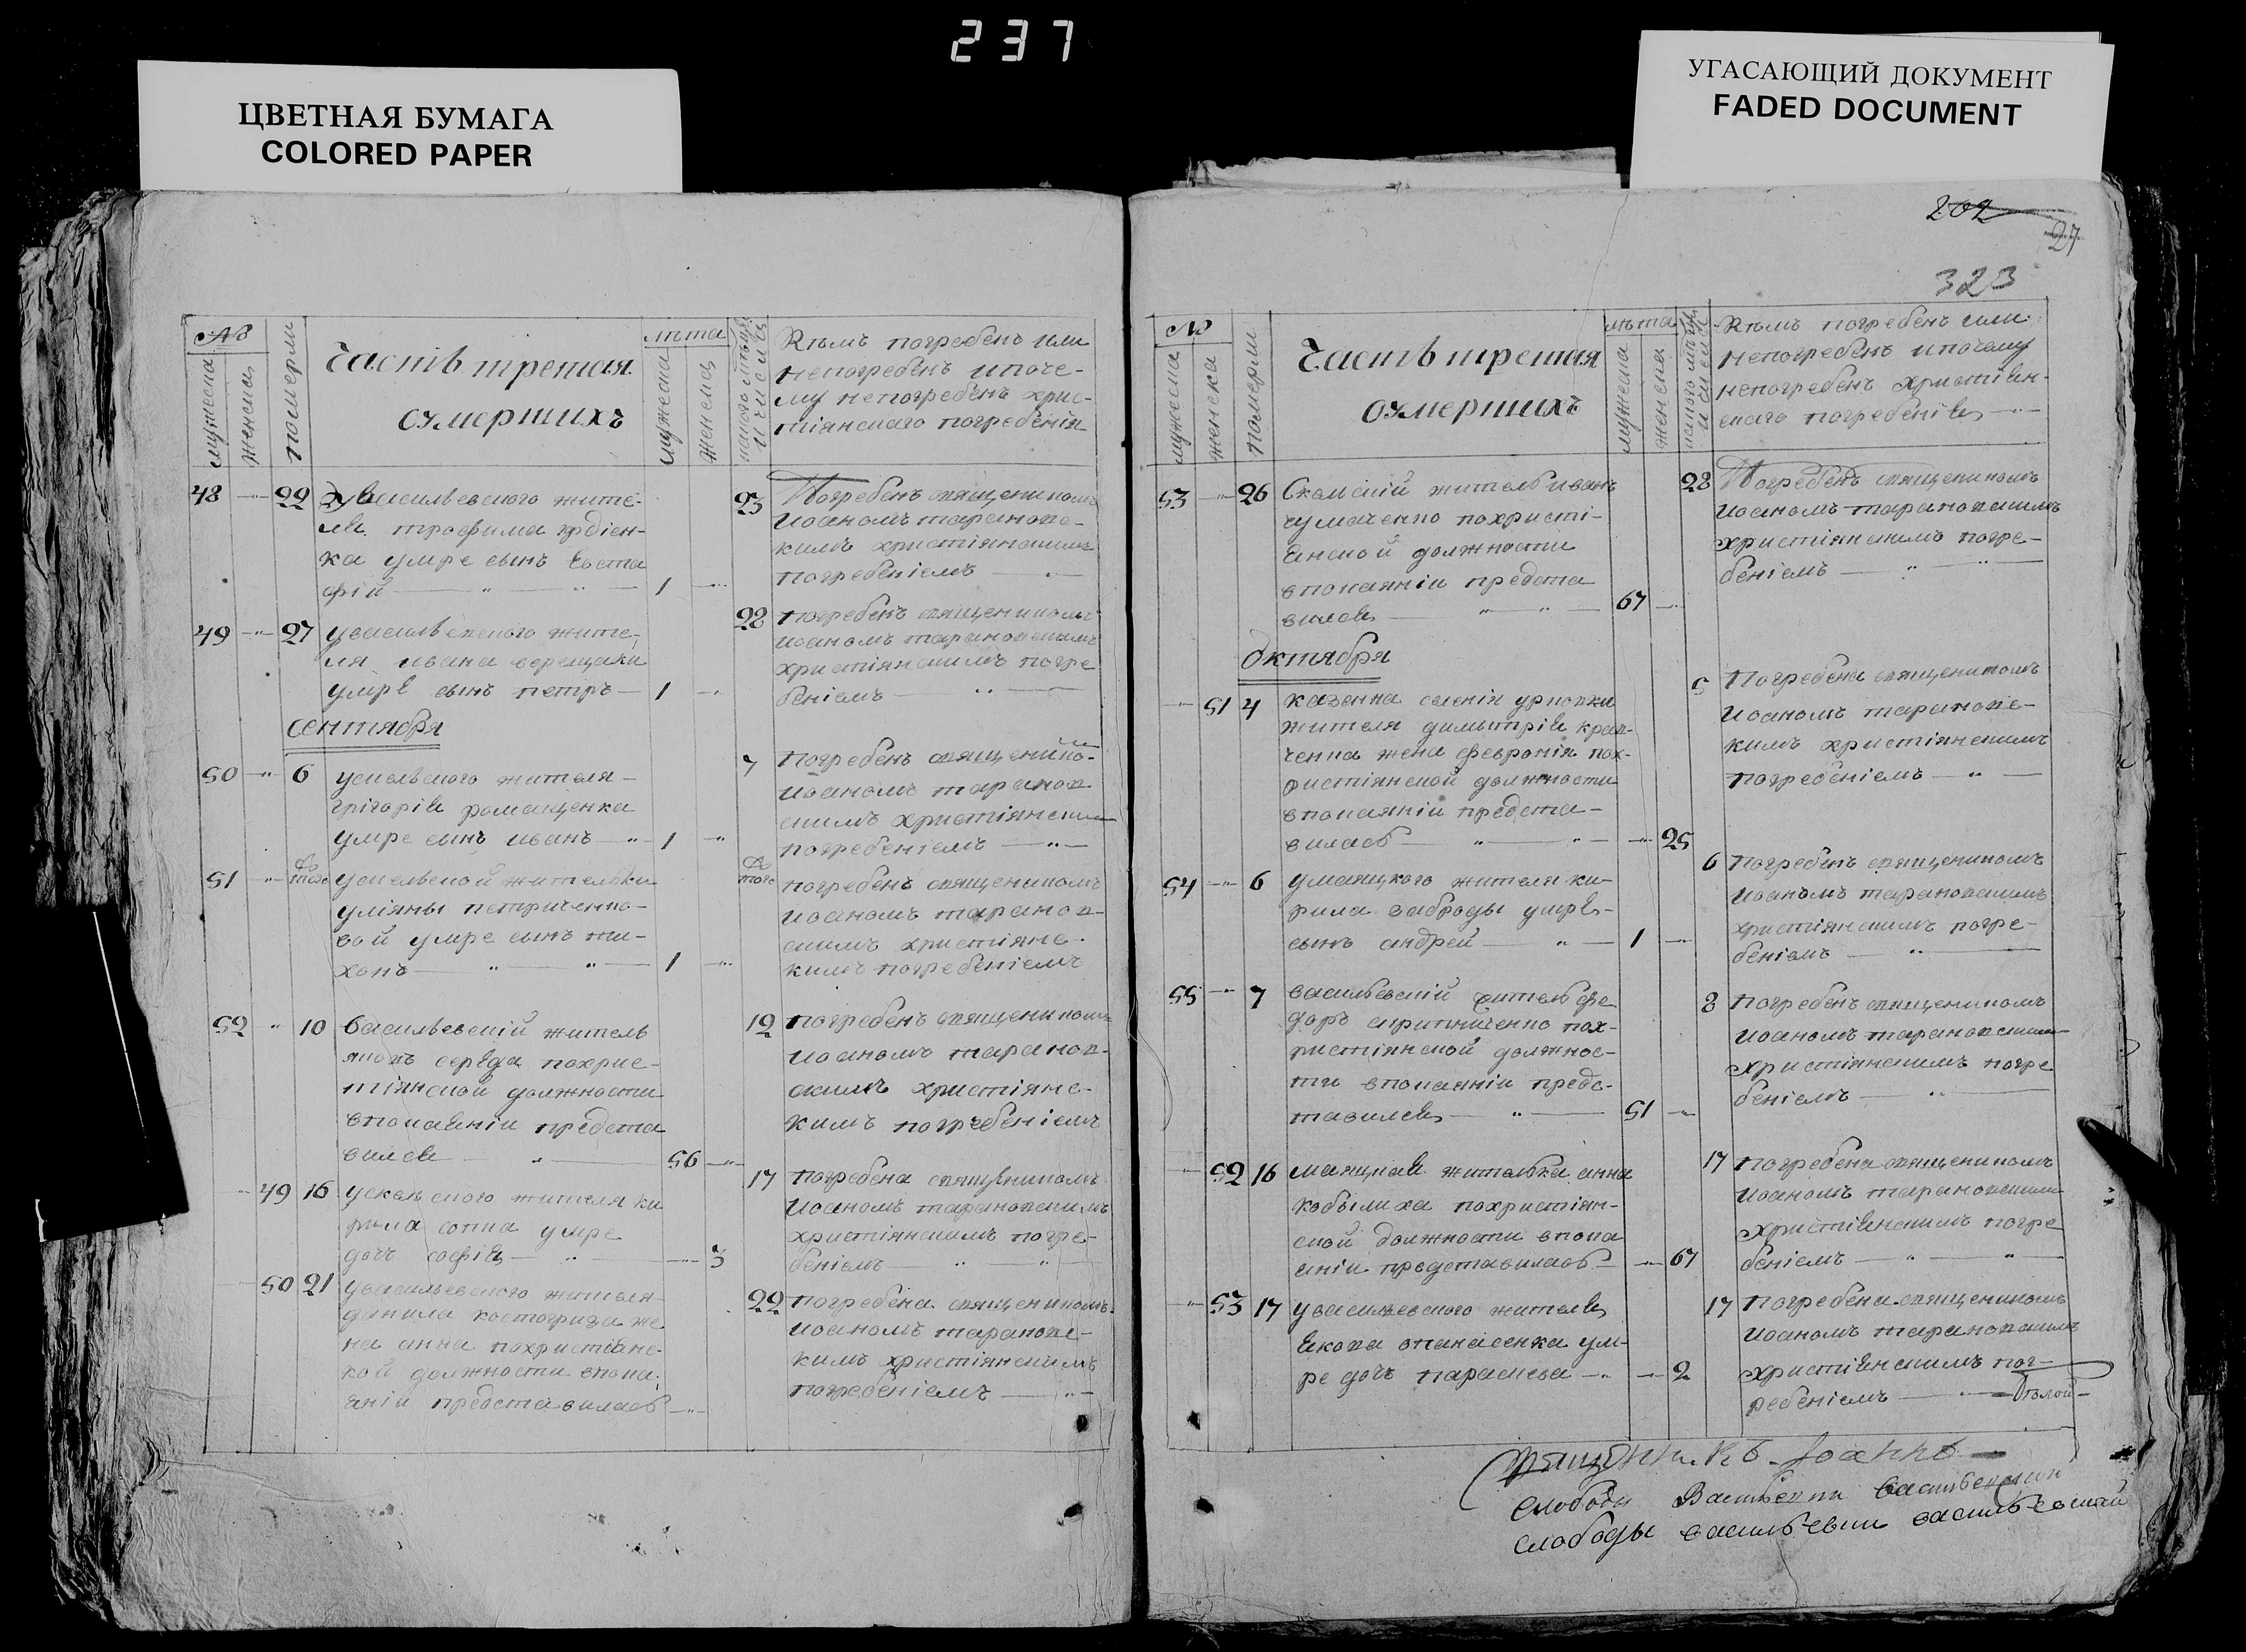 237
ЦВЕТНАЯ БУМАГА
COLORED PAPER
УГАСАЮЩИЙ ДОКУМЕНТ
FADED DOCUMENT
№
мужеска
женска
померли
Часть третая
оумершихъ
лѣта
мужеска
женска
и числа
Кѣмъ погребенъ или
непогребенъ ипоче-
му непогребенъ хрис-
тіянскаго погребенія
48 22 Увасильевского жите-
ля трофима
ка умре сынъ Евста
фій 1
23 Погребенъ священикомъ
иоаномъ таранове-
кимъ христіянскимъ
погребеніемъ
49 27 увасильевского жите-
ля ивана верещаки
умре сынъ петръ 1
28 погребенъ священикомъ
иоаномъ тарановскимъ
христіянскимъ погре
беніемъ
сентября
50 6 ускельского жителя
грігорія ромащенка
умре сынъ иванъ 1
7 погребенъ священико-
иоаномъ таранов
скимъ христіянским
погребеніемъ
51 тоже ускельской жителки
уліяны петриченко-
вой умре сынъ ти-
хонъ 1
тоже погребенъ священикомъ
иоаномъ таранов-
скимъ христіянс-
кимъ погребеніемъ
52 10 Васильевскій житель
яковъ середа похрис-
тіянской должности
впокаяніи предста
вился 56
12 погребенъ священикомъ
иоаномъ таранов-
скимъ христіянс-
кимъ погребеніемъ
49 16 ускельского жителя ки
рила сопка умре
дочъ софія 3
17 погребена священикомъ
иоаномъ тарановскимъ
христіянскимъ погре-
беніемъ
50 21 увасильевского жителя
данила костогриза же
на анна похристіянс-
кой должности впока-
яніи представилась
22 погребена священикомъ
иоаномъ таранове-
кимъ христіянскимъ
погребеніемъ
202
27
323
№
мужеска
женска
померли
Часть третая
оумершихъ
лѣта
мужеска
женска
и числа
Кѣмъ погребенъ или
непогребенъ ипочему
непогребенъ христіян-
скаго погребенія
53 26 Скельскій житель иванъ
чумаченко похристі-
янской должности
впокаяніи предста
вился 67
28 Погребенъ священикомъ
иоаномъ тарановскимъ
христіянскимъ погре-
беніемъ
Октября
51 4 казенна селенія
жителя димытрія крав-
ченка жена февронія пох-
ристіянской должности
впокаяніи предста-
вилась 25
5 Погребена священикомъ
иоаномъ таранове-
кимъ христіянскимъ
погребеніемъ
54 6 умаяцкого жителя ки-
рила заброды умре
сынъ андрей 1
6 погребенъ священикомъ
иоаномъ тарановскимъ
христіянскимъ погре-
беніемъ
55 7 васильевскій житель фе
доръ скрипниченко пох-
ристіянской должнос-
ти впокаяніи предс-
тавился 51
8 погребенъ священикомъ
иоаномъ тарановским
христіянскимъ погре
беніемъ
52 16 маяцкая жителька анна
кобылиха похристіян-
ской должности впока
яніи представилась 67
17 погребена священикомъ
иоаномъ тарановским
христіянскимъ погре
беніемъ
53 17 увасильевского жителя
Якова опанасенка ум-
ре дочъ параскева 2
17 погребена священикомъ
иоаномъ тарановскимъ
христіянскимъ пог-
ребеніемъ
Іоаннъ
слободы
слободы васильевки васильевской